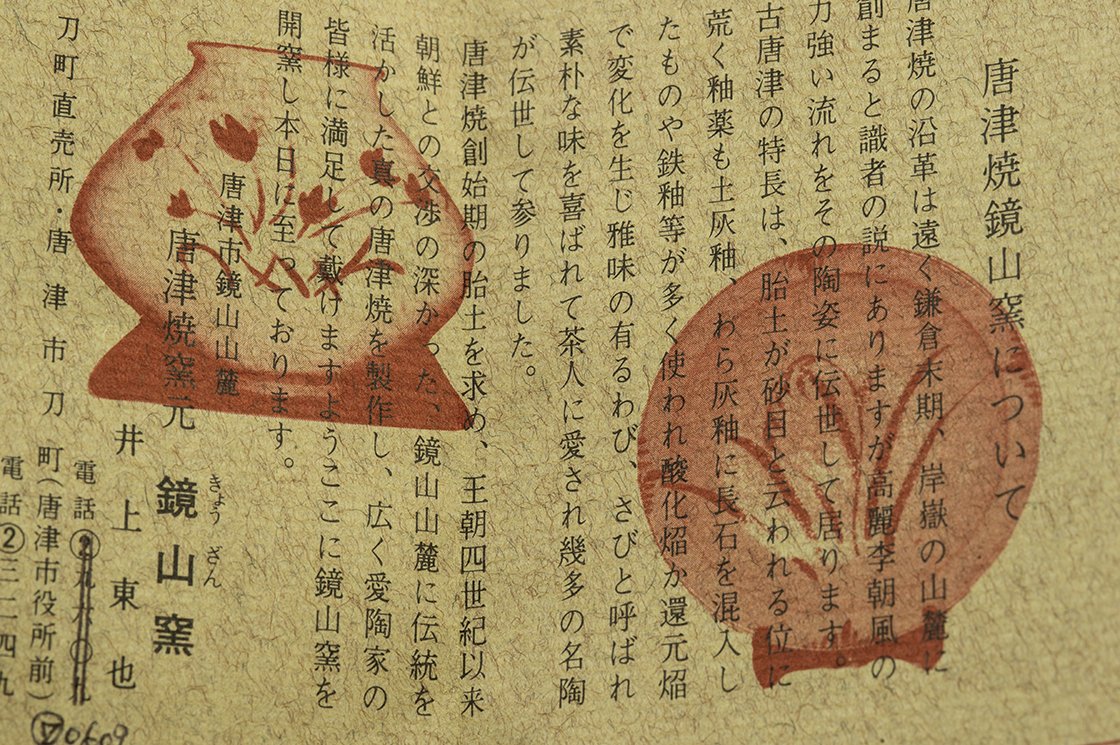 唐津焼鏡山窯について
唐津焼の沿革は遠く鎌倉末期、岸嶽の山麓に
創まると識者の説にありますが高麗李朝風の
力強い流れをその陶姿に伝世して居ります。
古唐津の特長は、胎土が砂目と云われる位に
荒く釉薬も土灰釉、わら灰釉に長石を混入し
たものや鉄釉等が多く使われ酸化焔か還元焔
で変化を生じ雅味の有るわび、さびと呼ばれ
素朴な味を喜ばれて茶人に愛され幾多の名陶
が伝世して参りました。
唐津焼創始期の胎土を求め、王朝四世紀以来
朝鮮との交渉の深かった、鏡山山麓に伝統を
活かした真の唐津焼を製作し、広く愛陶家の
皆様に満足して戴けますようここに鏡山窯を
開窯し本日に至っております。
唐津市鏡山山麓
唐津焼窯元 鏡山窯
きょうざん
井上東也
刀町直売所・唐津市刀町(唐津市役所前)
電話
電話②三二四九
0609